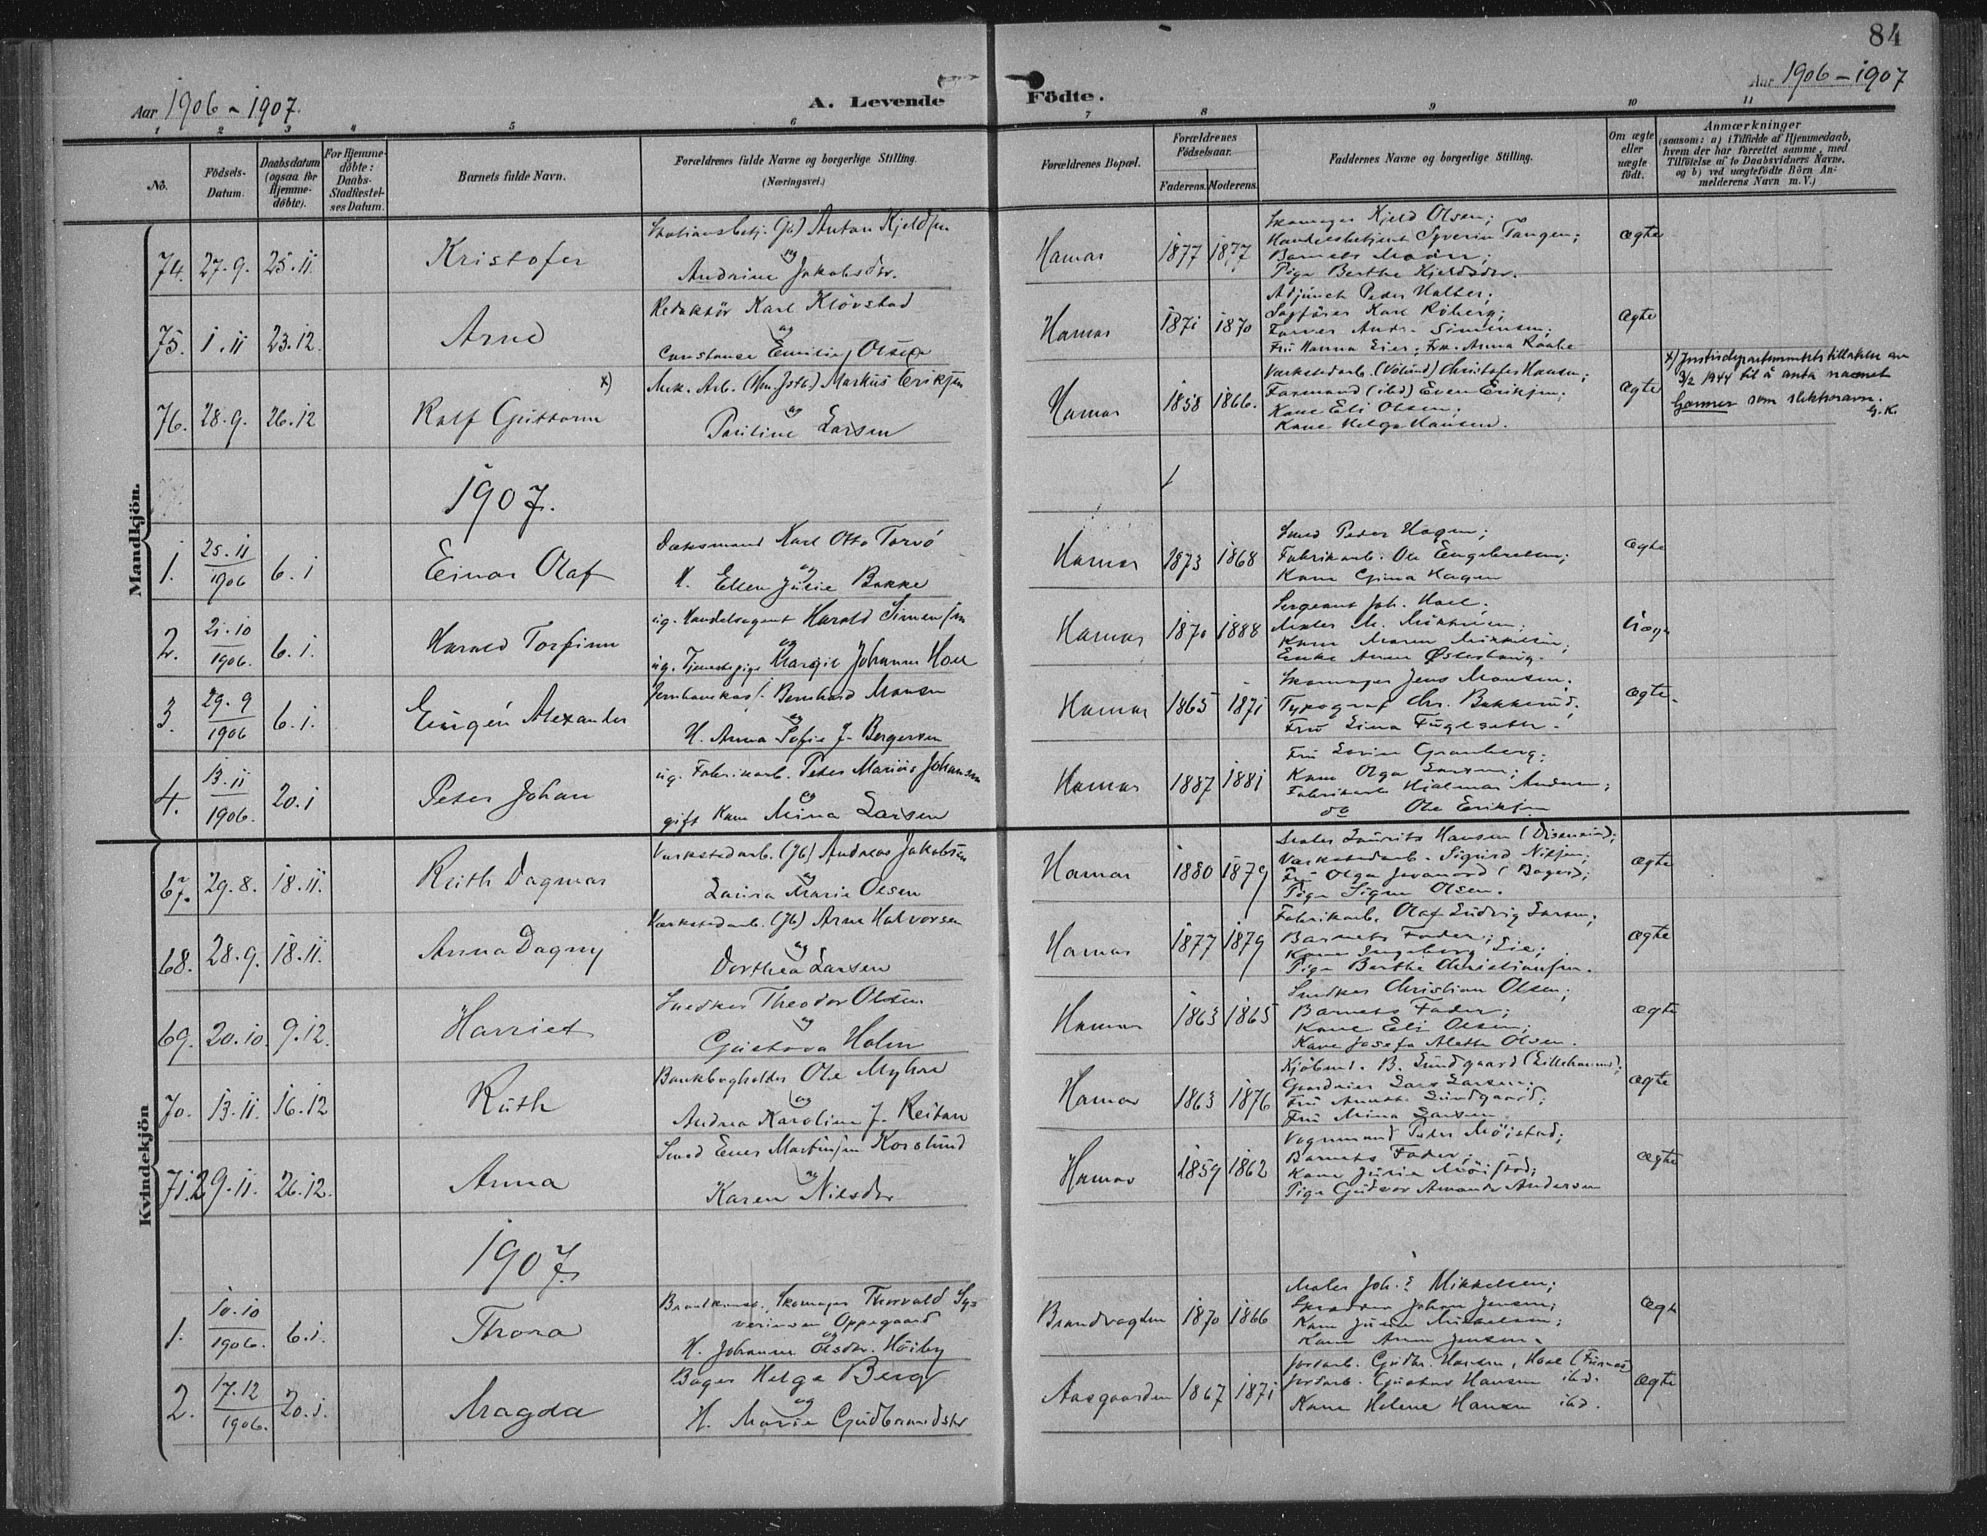 84
Aar 1906 - 1907.
A. Levende Födte.
Aar 1906 - 1907
1 2 3 4 5 6 7 8 9 10 11
No.
Födsels-Datum.
Daabsdatum (ogsaa for Hjemme-döbte).
For Hjemme-döbte: Daabs-Stadfæstel-ses Datum.
Barnets fulde Navn.
Forældrenes fulde Navne og borgerlige Stilling.
(Næringsvei.)
Forældrenes Bopæl.
Forældrenes Födselsaar.
Faderens. Moderens.
Faddernes Navne og borgerlige Stilling.
Om ægte eller uægte födt.
Anmærkninger
(saasom: a) i Tilfælde af Hjemmedaab, hvem der har forrettet samme, med Tilföielse af to Daabsvidners Navne, og b) ved uægtefödte Börn An-melderens Navn m. V.)
Mandkjön.
74. 27.9. 25.11 Kristofer
Stationsbetj. (Jb) Anton Kjeldsen
og
Andrine Jakobsdr.
Hamar 1877 1877
Skomager Kjeld Olsen;
Handelsbetjent Syverin Tangen;
Barnets Moder;
Pige Berthe Kjeldsdr.
ægte
75. 1.11 23.12. Arne
Redaktör Karl Klövstad
og
Constance Emilie Olsen
Hamar 1871 1870
Adjunct Peder Halter;
Sagförer Karl Röberg;
Farver Andr. Simensen;
Frü Hanna Lier; Frk. Anna Raabe
ægte
76. 28.9. 26.12 Rolf Guttorm x)
Mek. Arb. (Hm. Jstb.) Markus Eriksen
og
Pauline Larsen
Hamar 1858 1866.
Værkstedarb. Christofer Hansen;
Formand (ibd) Even Eriksen.
Kone Eli Olsen;
Kone Helga Hansen.
ægte
x) Justisdepartementets tillatelse av
3/2 1944 til å anta navnet
som slektsnavn.
1907.
1. 25.11/1906 6.1 Einar Olaf
Karl Otto Torvö
og
H. Ellen Julie Bakke
Hamar 1873 1868
Smed Peder Hagen;
Fabrikarb. Ole Engebretsen;
Kone Gina Hagen
ægte
2. 21.10/1906. 6.1. Harald Torfinn
ug. Handelsagent Harald Simensen
og
ug. Tjenestepige Margit Johanne Hoel
Hamar 1870 1888
Sergeant Joh. Hoel;
Maler M. Mikkelsen;
Kone Maren Mikkelsen;
Enke Anne Østerhaug.
Uægte
3. 29.9/1906 6.1. Eugén Alexander
Bernhard Monsen
og
H. Anna Sofie J. Bergersen
Hamar 1865 1871
Skomager Jens Monsen;
Typograf Chr. Bakkerud;
Frü Lina Fuglseth.
ægte.
4. 13.11/1906. 20.1 Peter Johan
ug. Fabrikarb. Peter Marius Johansen
og
gift Kone Mina Larsen
Hamar 1887 1881
Frü Granberg;
Kone Olga Larsen;
Fabrikarb. Hjalmar Andersen;
do Ole Eriksen
Kvindekjön
67. 29.8. 18.11. Ruth Dagmar
Værkstedarb. (Jb) Andreas Jakobsen
og
Laura Marie Olsen
Hamar 1880 1879
Maler Laurits Hansen;
Værkstedarb. Sigurd Nilsen;
Frü Olga (Bager);
Pige Signe Olsen.
ægte
68. 28.9. 18.11. Anna Dagny
Værkstedarb. (Jb) Arne Halvorsen
og
Dorthea Larsen
Hamar 1877 1879
Fabrikarb. Olaf Ludvig Larsen;
Barnets Fader;
Kone Ingeborg Lie;
Pige Berthe Christiansen.
ægte
69. 20.10. 9.12. Harriet
Snedker Theodor Olsen
og
Gustava Holm
Hamar 1863 1865
Snedker Christian Olsen;
Barnets Fader;
Kone Eli Olsen;
Kone Josefa Alette Olsen.
ægte
70. 13.11. 16.12 Ruth
Bankbogholder Ole Myhre
og
Andrea Karoline J. Reitan
Hamar 1863 1876
Kjöbmd. B. Sundgaard (Lillehammer);
Lars Larsen;
Frü Anette Sundgaard;
Frü Mina Larsen.
ægte
71. 29.11. 26.12. Anna
Smed Even Martinsen Korslund
og
Karen Nilsdr
Hamar 1859 1862
Vognmand Peder Möistad;
Barnets Fader;
Kone Julie Möistad;
Pige Gudvor Amanda Andersen
ægte
1907.
1. 10.10/1906. 6.1. Thora
Skomager Thorvald Sy-
verinsen Oppegaard
og
H. Johanne Olsdr. Höiby
Brandvagten 1870 1866
Maler Joh. Mikkelsen;
Johan Jensen;
Kone Julie Mikkelsen;
Kone Anne Jensen.
ægte
2. 17.12/1906. 20.1. Magda
Bager Helge Berg
og
H. Marie Gudbrandsdr
Aasgaarden 1867 1871
Jordarb. Gudbr. Hansen, Hoel (Furnes)
Jordarb. Gustav Hansen ibd.
Kone Helene Hansen ibd.
ægte